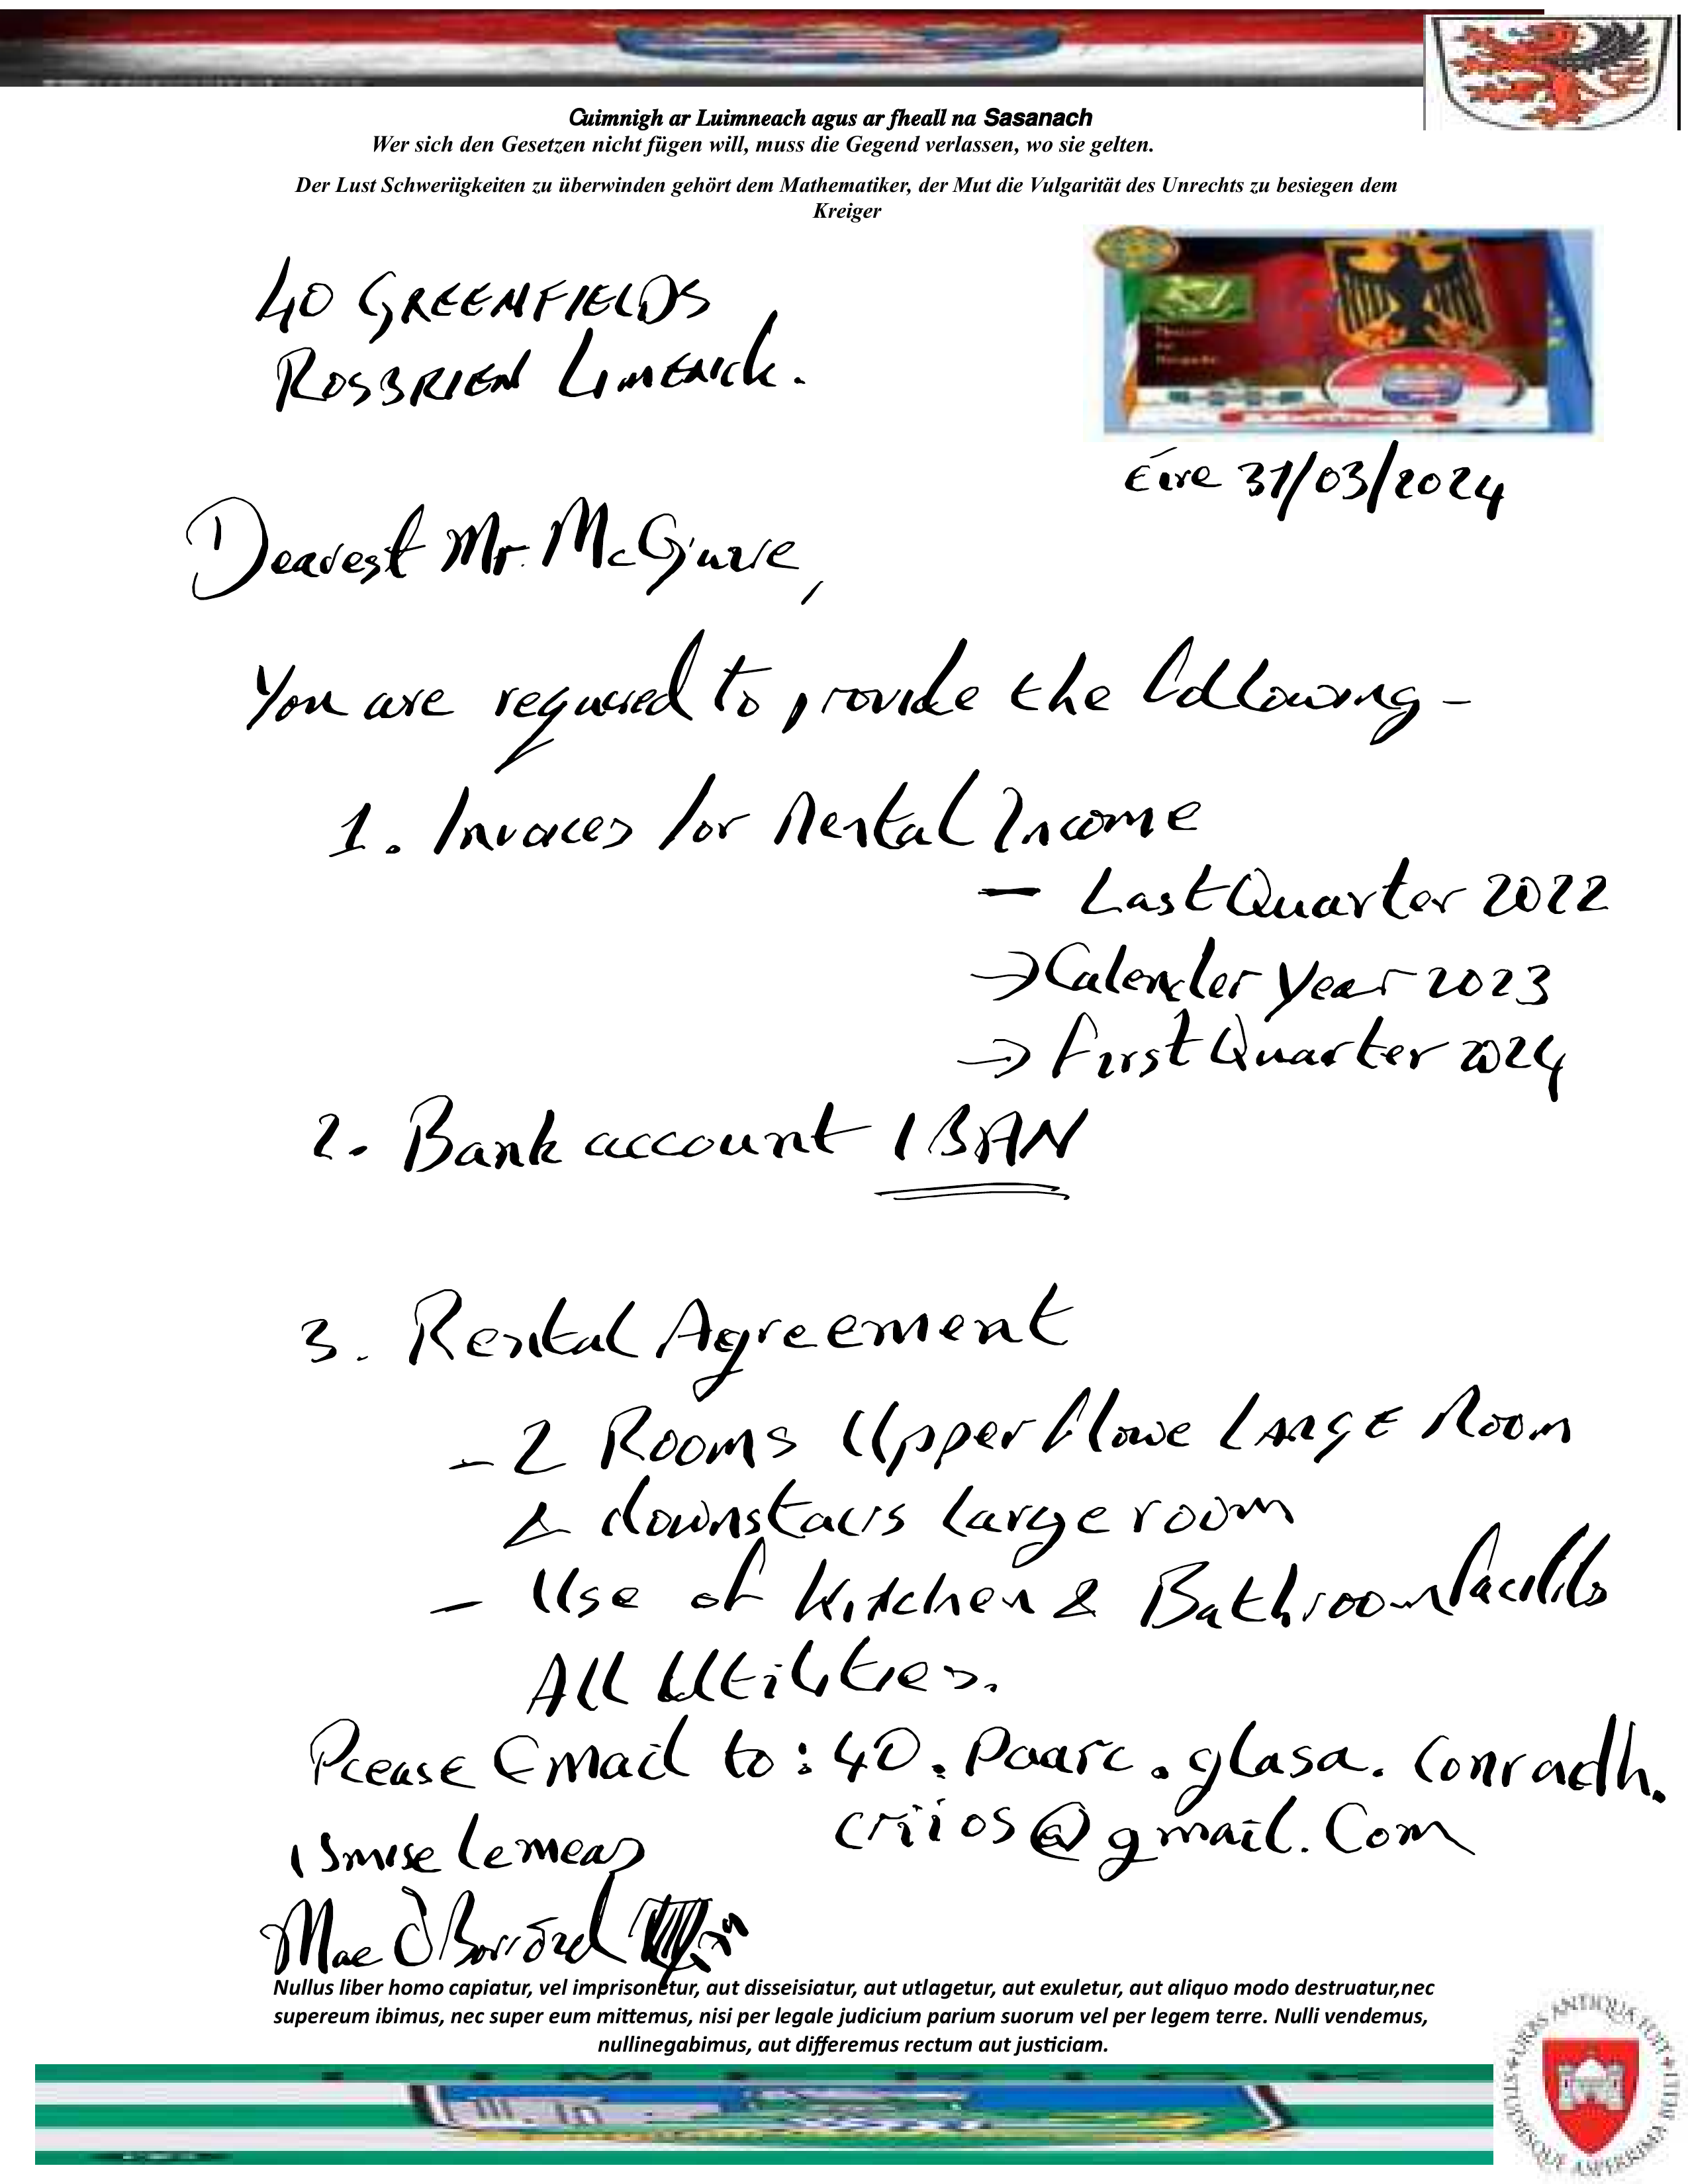 Cuimnigh ar Luimneach agus ar fheall na Sasanach
Wer sich den Gesetzen nicht fügen will, muss die Gegend verlassen, wo sie gelten.
Der Lust Schweriigkeiten zu überwinden gehört dem Mathematiker, der Mut die Vulgarität des Unrechts zu besiegen dem
Kreiger
40 GREENFIELDS
ROSBRIEN LIMERICK.
Éire 31/03/2024
Dearest Mr. McGuire,
You are required to provide the following -
1. Invoices for Rental Income
- Last Quarter 2022
→ Calender Year 2023
→ First Quarter 2024
2. Bank account IBAN
3. Rental Agreement
- 2 Rooms Upper LARGE Room
& downstairs large room
- Use of Kitchen & Bathroom
All Utilities.
Please Email to: 40.Paarc.glasa.Conradh.
criios@gmail.Com
Ismise le meas
Mac
Nullus liber homo capiatur, vel imprisonetur, aut disseisiatur, aut utlagetur, aut exuletur, aut aliquo modo destruatur,nec
supereum ibimus, nec super eum mittemus, nisi per legale judicium parium suorum vel per legem terre. Nulli vendemus,
nullinegabimus, aut differemus rectum aut justiciam.
URBS ANTIQUA FUIT STUDIISQUE ASPERRIMA BELLI